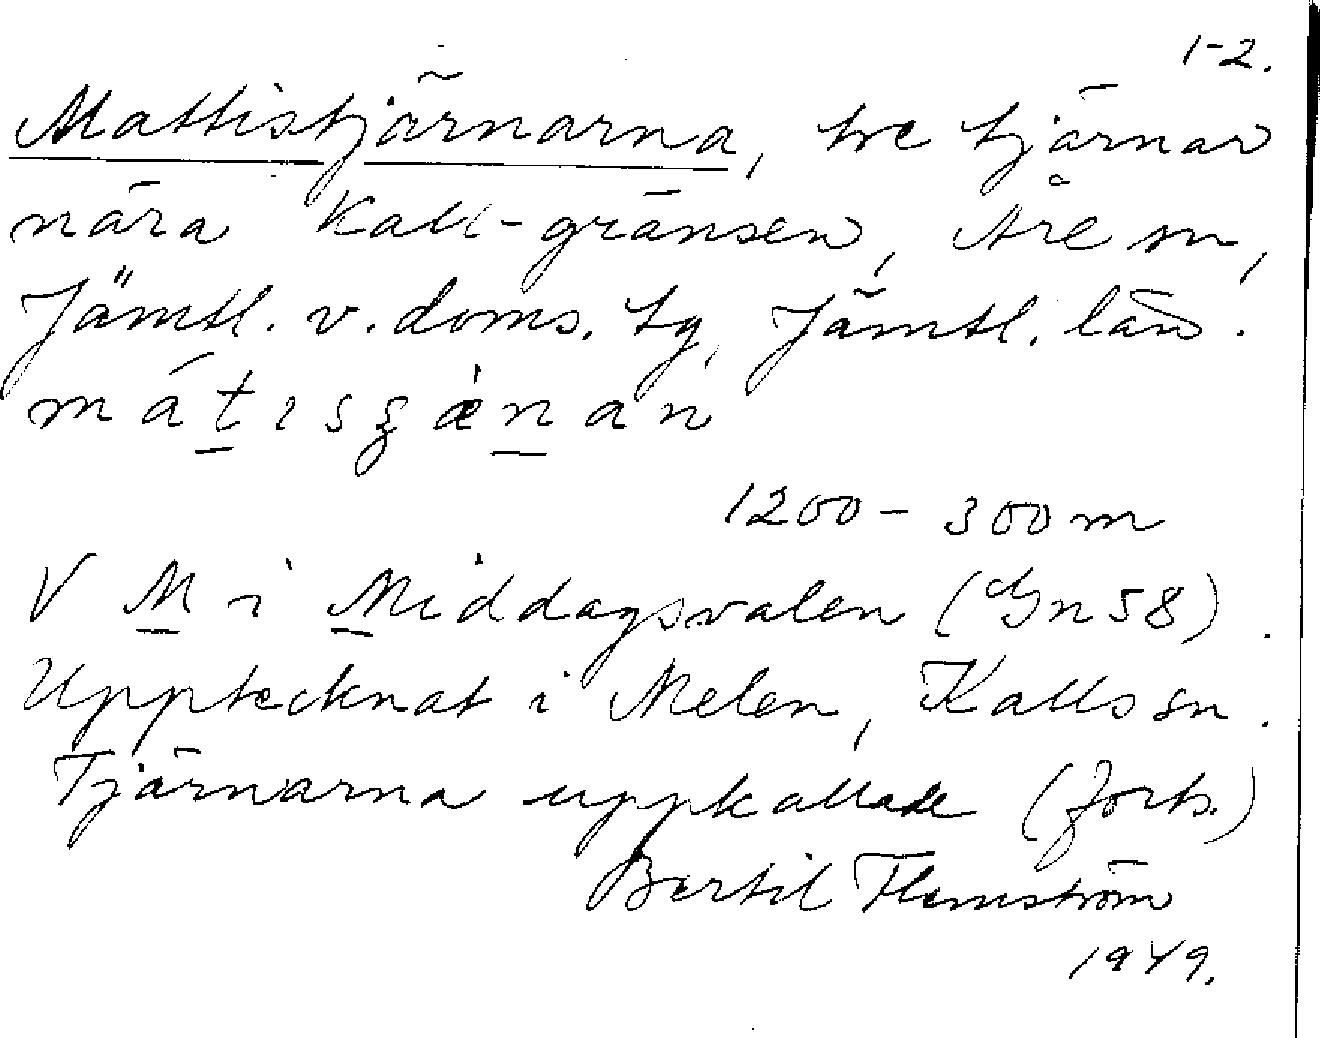 1-2.
Mattistjärnarna, tre tjärnar
nära Kall-gränsen, Åre sn,
Jämtl. v. doms. tg, Jämtl. län.
1200-300 m
V M i Middagsvalen (Gn 58).
Upptecknat i Melen, Kalls sn.
Tjärnarna uppkallade (forts.)
Bertil Flemström
1949.